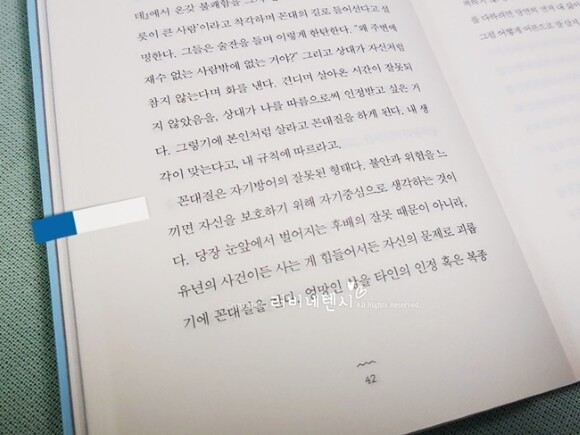 데』에서 온갖 불쾌함을 그
릇이 큰 사람'이라고 착각하며 꼰대의 길로 들어선다고 설
명한다. 그들은 술잔을 들며 이렇게 한탄한다. "왜 주변에
재수 없는 사람밖에 없는 거야?" 그리고 상대가 자신처럼
참지 않는다며 화를 낸다. 견디며 살아온 시간이 잘못되
지 않았음을, 상대가 나를 따름으로써 인정받고 싶은 거
다. 그렇기에 본인처럼 살라고 꼰대질을 하게 된다. 내 생
각이 맞는다고, 내 규칙에 따르라고.
꼰대질은 자기방어의 잘못된 형태다. 불안과 위협을 느
끼면 자신을 보호하기 위해 자기중심으로 생각하는 것이
다. 당장 눈앞에서 벌어지는 후배의 잘못 때문이 아니라,
유년의 사건이든 사는 게 힘들어서든 자신의 문제로 괴롭
기에 꼰대질을 한다. 엉망인 삶을 타인의 인정 혹은 복종
라버네텐시
All Rights reserved
42
를 다하려면 당연히
그럼 어떻게